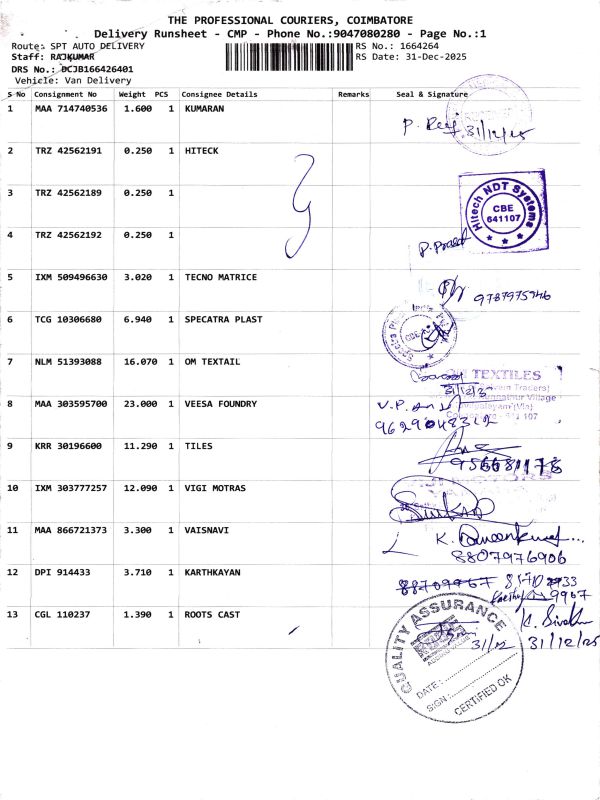 THE PROFESSIONAL COURIERS, COIMBATORE
Delivery Runsheet - CMP - Phone No.:9047080280 - Page No.:1
Route: SPT AUTO DELIVERY
RS No.: 1664264
Staff: RAJKUMAR
RS Date: 31-Dec-2025
DRS No.: DCJB166426401
Vehicle: Van Delivery
S No Consignment No Weight PCS Consignee Details Remarks Seal & Signature
1 MAA 714740536 1.600 1 KUMARAN
31/12/25
2 TRZ 42562191 0.250 1 HITECK
3 TRZ 42562189 0.250 1
Hitech NDT Systems
CBE
641107
4 TRZ 42562192 0.250 1
5 IXM 509496630 3.020 1 TECNO MATRICE
9787975946
6 TCG 10306680 6.940 1 SPECATRA PLAST
7 NLM 51393088 16.070 1 OM TEXTAIL
TEXTILES
8 MAA 303595700 23.000 1 VEESA FOUNDRY
V.P.
9629048312
9 KRR 30196600 11.290 1 TILES
10 IXM 303777257 12.090 1 VIGI MOTRAS
11 MAA 866721373 3.300 1 VAISNAVI
8807976906
12 DPI 914433 3.710 1 KARTHKAYAN
9967
13 CGL 110237 1.390 1 ROOTS CAST
31/12
31/12/25
QUALITY ASSURANCE
DATE:
SIGN:
CERTIFIED OK